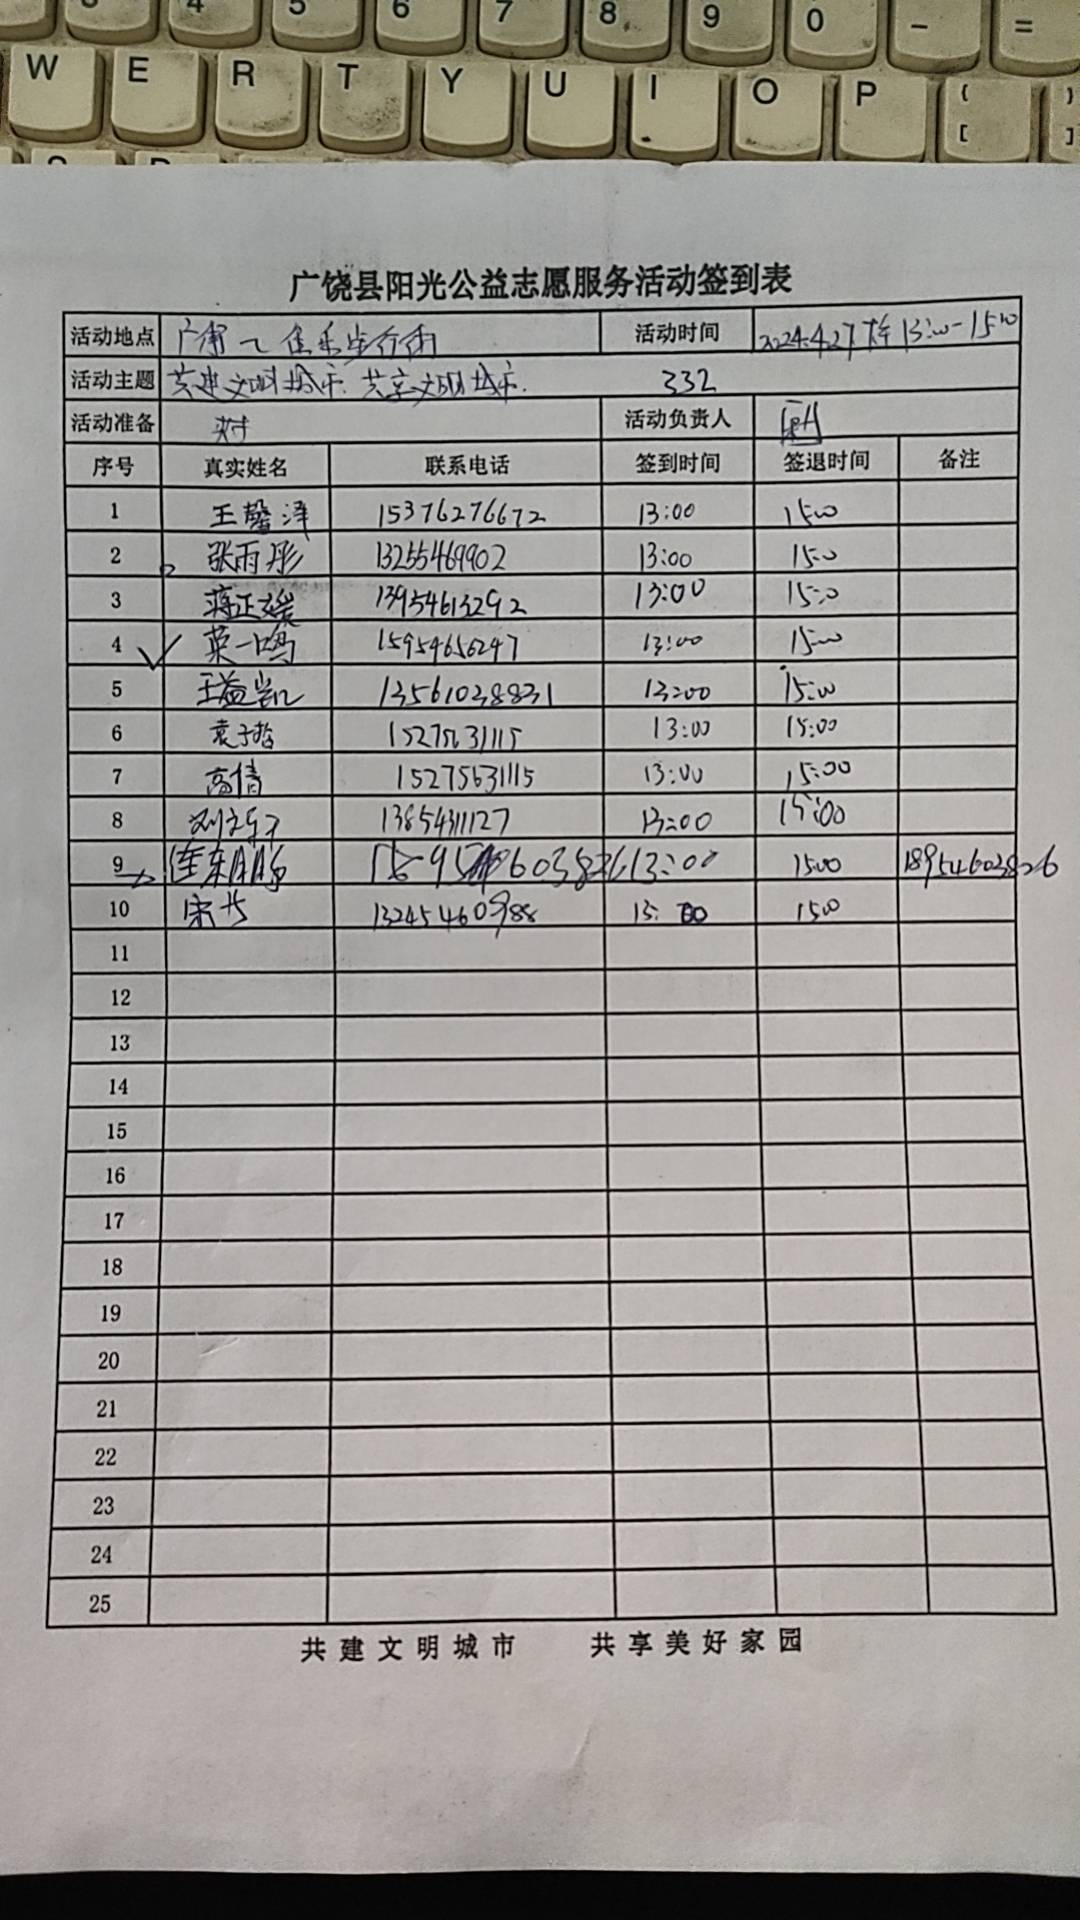 3 4 5 6 7 8 9 0 - =
W E R T Y U I O P { [ } ]
广饶县阳光公益志愿服务活动签到表
活动地点 活动时间 2024.4.27 13:00-15:00
活动主题 共建文明城市.共享文明城市. 332
活动准备 活动负责人
序号 真实姓名 联系电话 签到时间 签退时间 备注
1 王馨泽 15376276672 13:00 15:00
2 张雨彤 13255469902 13:00 15:00
3 蒋正媛 13954613292 13:00 15:00
4 英一鸣 15954656247 13:00 15:00
5 王益凯 13561038831 13:00 15:00
6 袁子哲 13:00 15:00
7 高倩 15275631115 13:00 15:00
8 13854311127 13:00 15:00
9 13:00 15:00 18954603826
10 13245460988 13:00 15:00
11
12
13
14
15
16
17
18
19
20
21
22
23
24
25
共建文明城市 共享美好家园